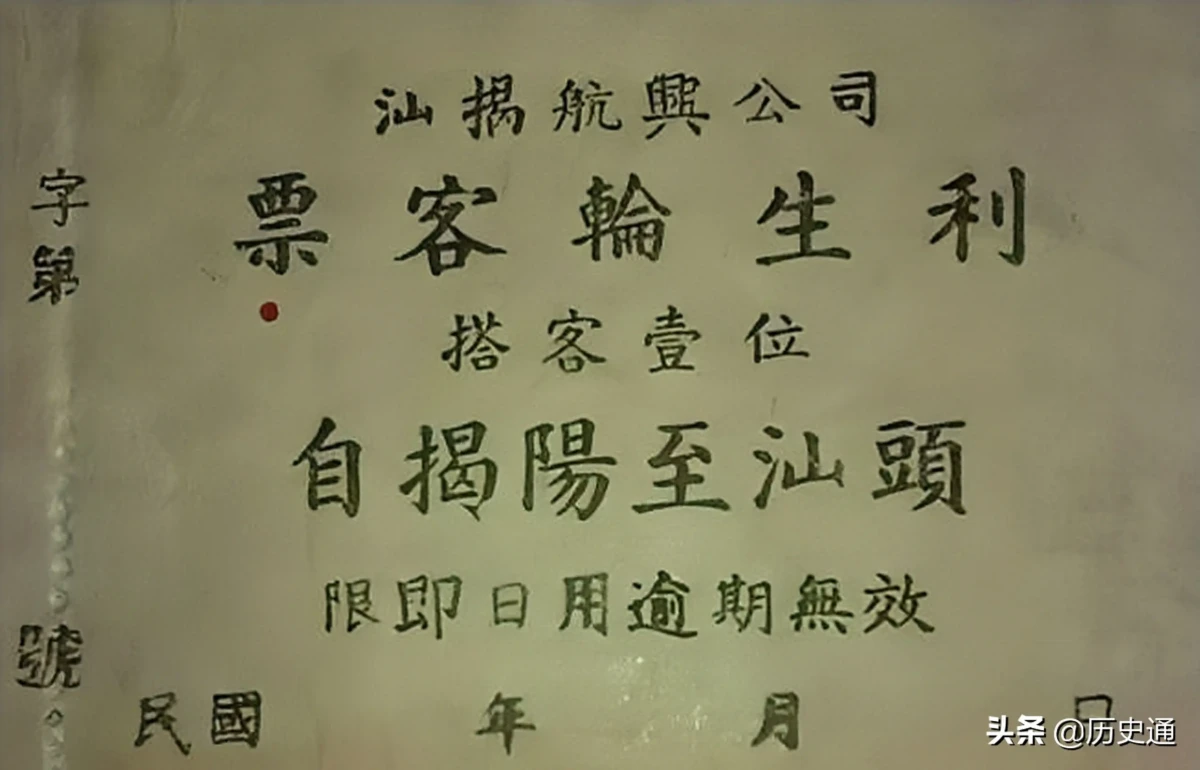 汕揭航興公司
票客輪生利
搭客壹位
自揭陽至汕頭
限即日用逾期無效
民國 年 月 日
字第 號
头条 @历史通